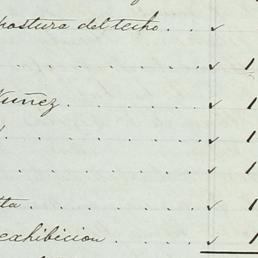 postura del techo . . . ✓
. . . . . . . ✓ 1
Nuñez . . . . . . ✓ 1
. . . . . . . ✓ 1
. . . . . . . ✓ 1
tta . . . . . . ✓ 1
exhibicion . . . . ✓ 1